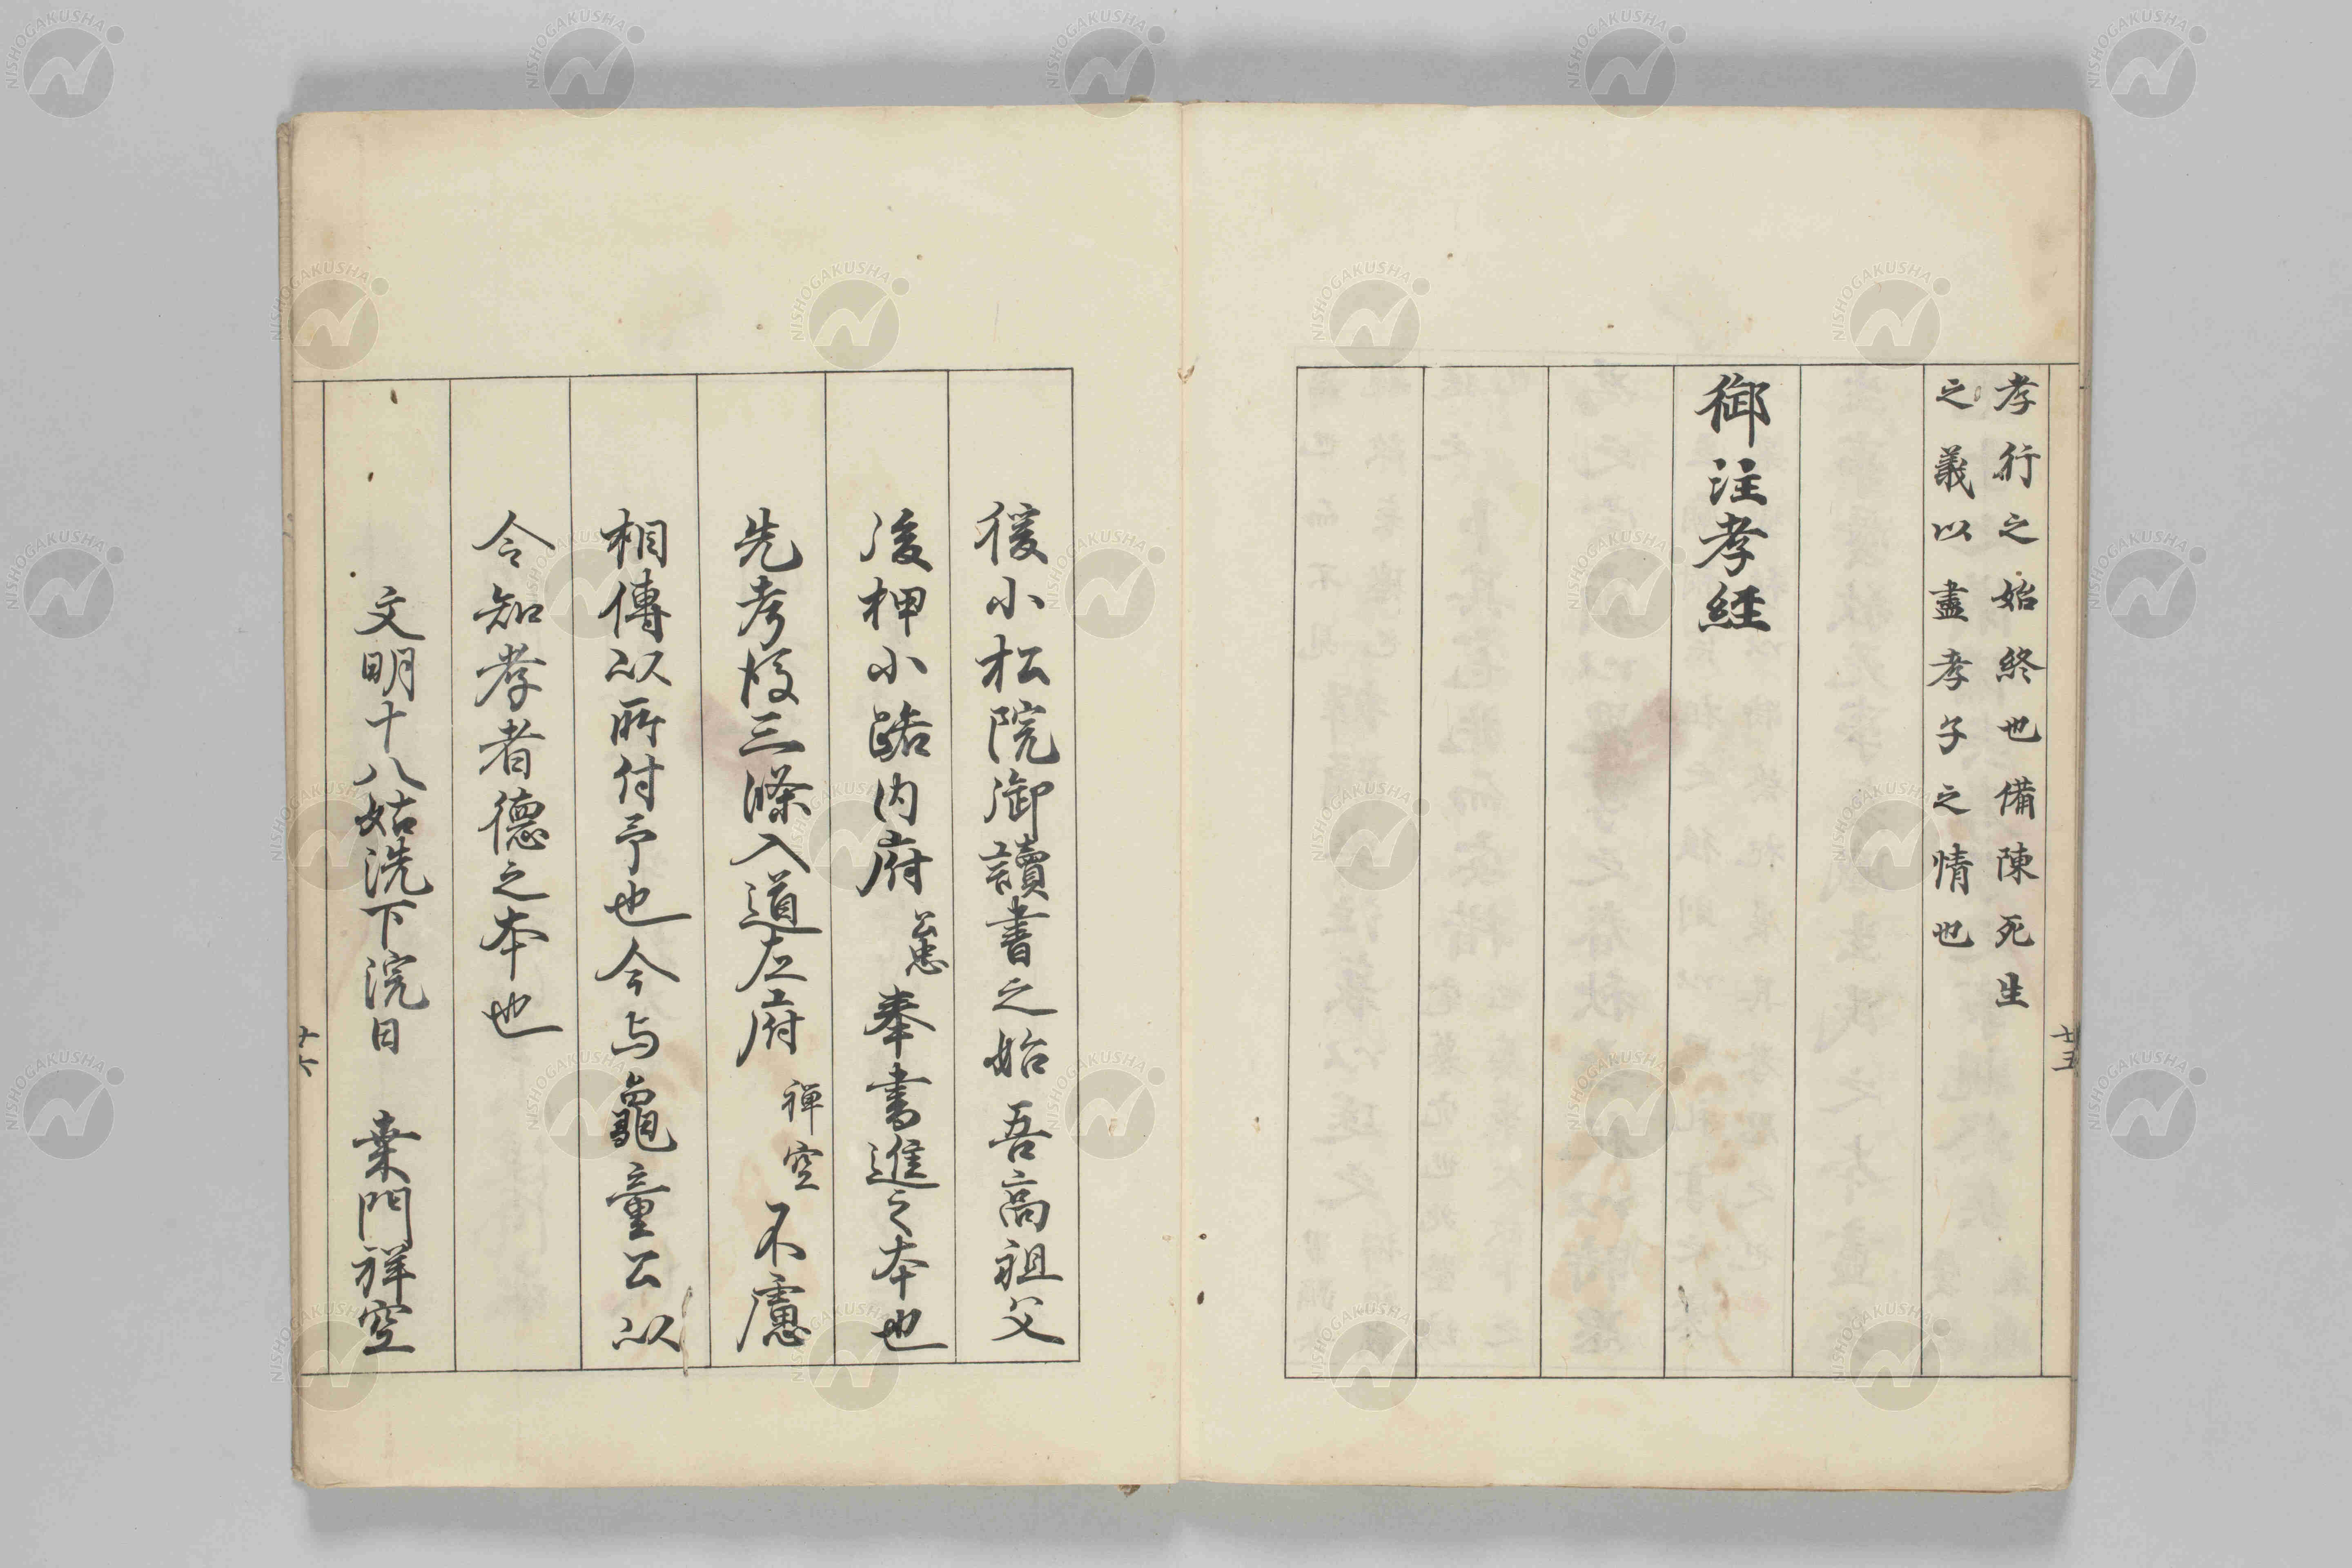 孝行之始終也備陳死生
之義以盡孝子之情也
御注孝経
後小松院御讀書之始吾高祖父
後押小路内府公忠奉書進之本也
先考後三條入道左府禅空不慮
相傳以所付予也今与龜童公以
令知孝者德之本也
文明十八姑洗下浣日 桒門祥空
廿五
NISHOGAKUSHA